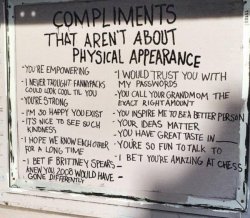 COMPLIMENTS
THAT AREN'T ABOUT
PHYSICAL APPEARANCE
-YOU'RE EMPOWERING
-I NEVER THOUGHT FANNYPACKS
COULD LOOK COOL TIL YOU
-YOU'RE STRONG
-I'M SO HAPPY YOU EXIST
-IT'S NICE TO SEE SUCH
KINDNESS
-I HOPE WE KNOW EACH OTHER
FOR A LONG TIME
-I BET IF BRITNEY SPEARS
KNEW YOU, 2008 WOULD HAVE
GONE DIFFERENTLY
-I WOULD TRUST YOU WITH
MY PASSWORDS
-YOU CALL YOUR GRANDMOM THE
EXACT RIGHT AMOUNT
-YOU INSPIRE ME TO BE A BETTER PERSON
-YOUR IDEAS MATTER
-YOU HAVE GREAT TASTE IN ___
-YOU'RE SO FUN TO TALK TO
-I BET YOU'RE AMAZING AT CHESS